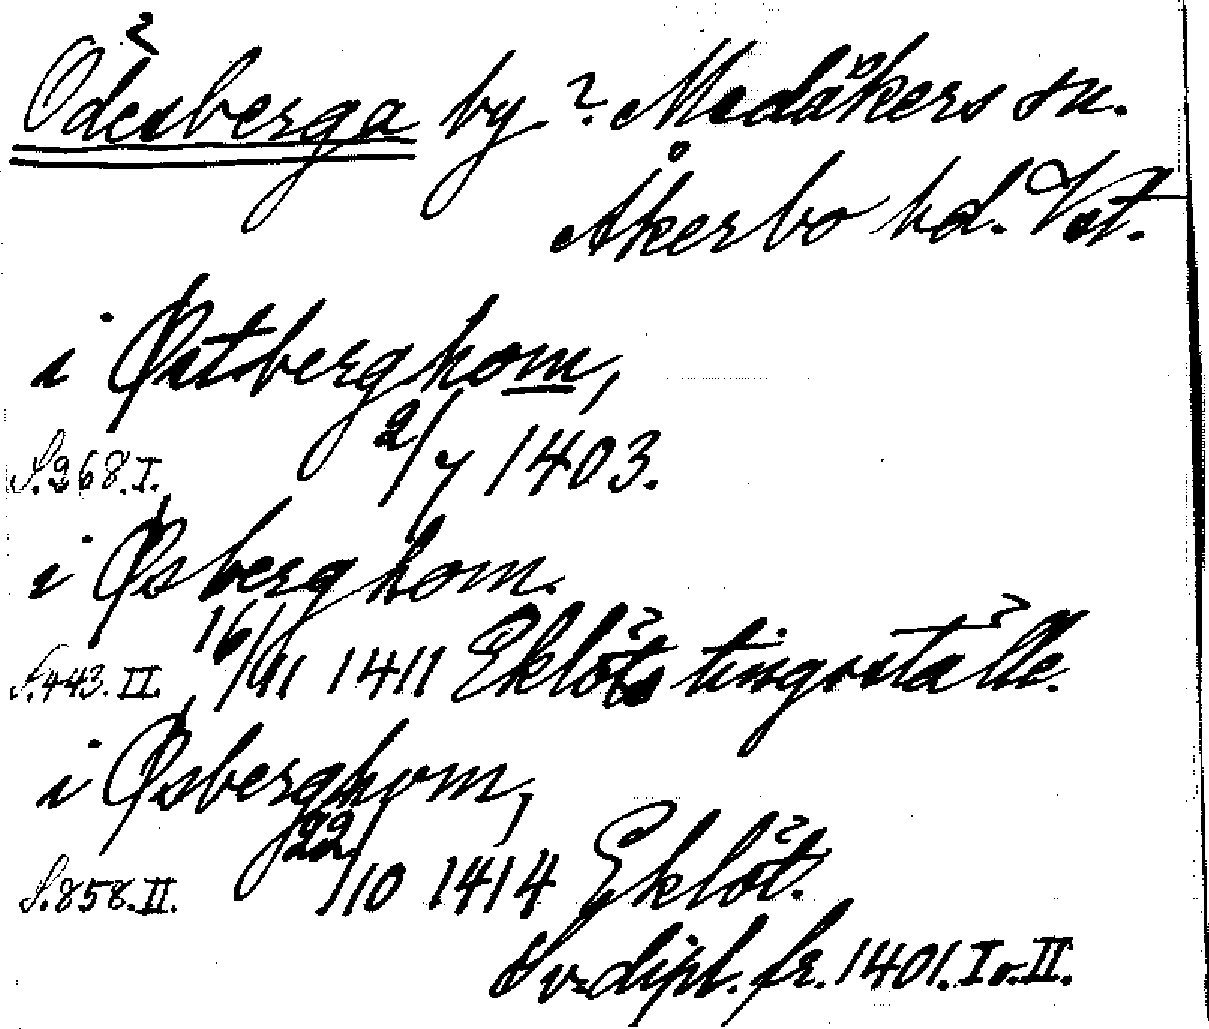 Ödesberga by? Medåkers sn.
Åkerbo hd. Vst.
i Østberghom,
S.268.I. 2/7 1403.
i Øsberghom.
S.443.II. 16/11 1411 Eklöts tingsställe.
i Øsberghom,
S.858.II. 22/10 1414 Eklöt.
Sv. dipl. fr. 1401. I o. II.